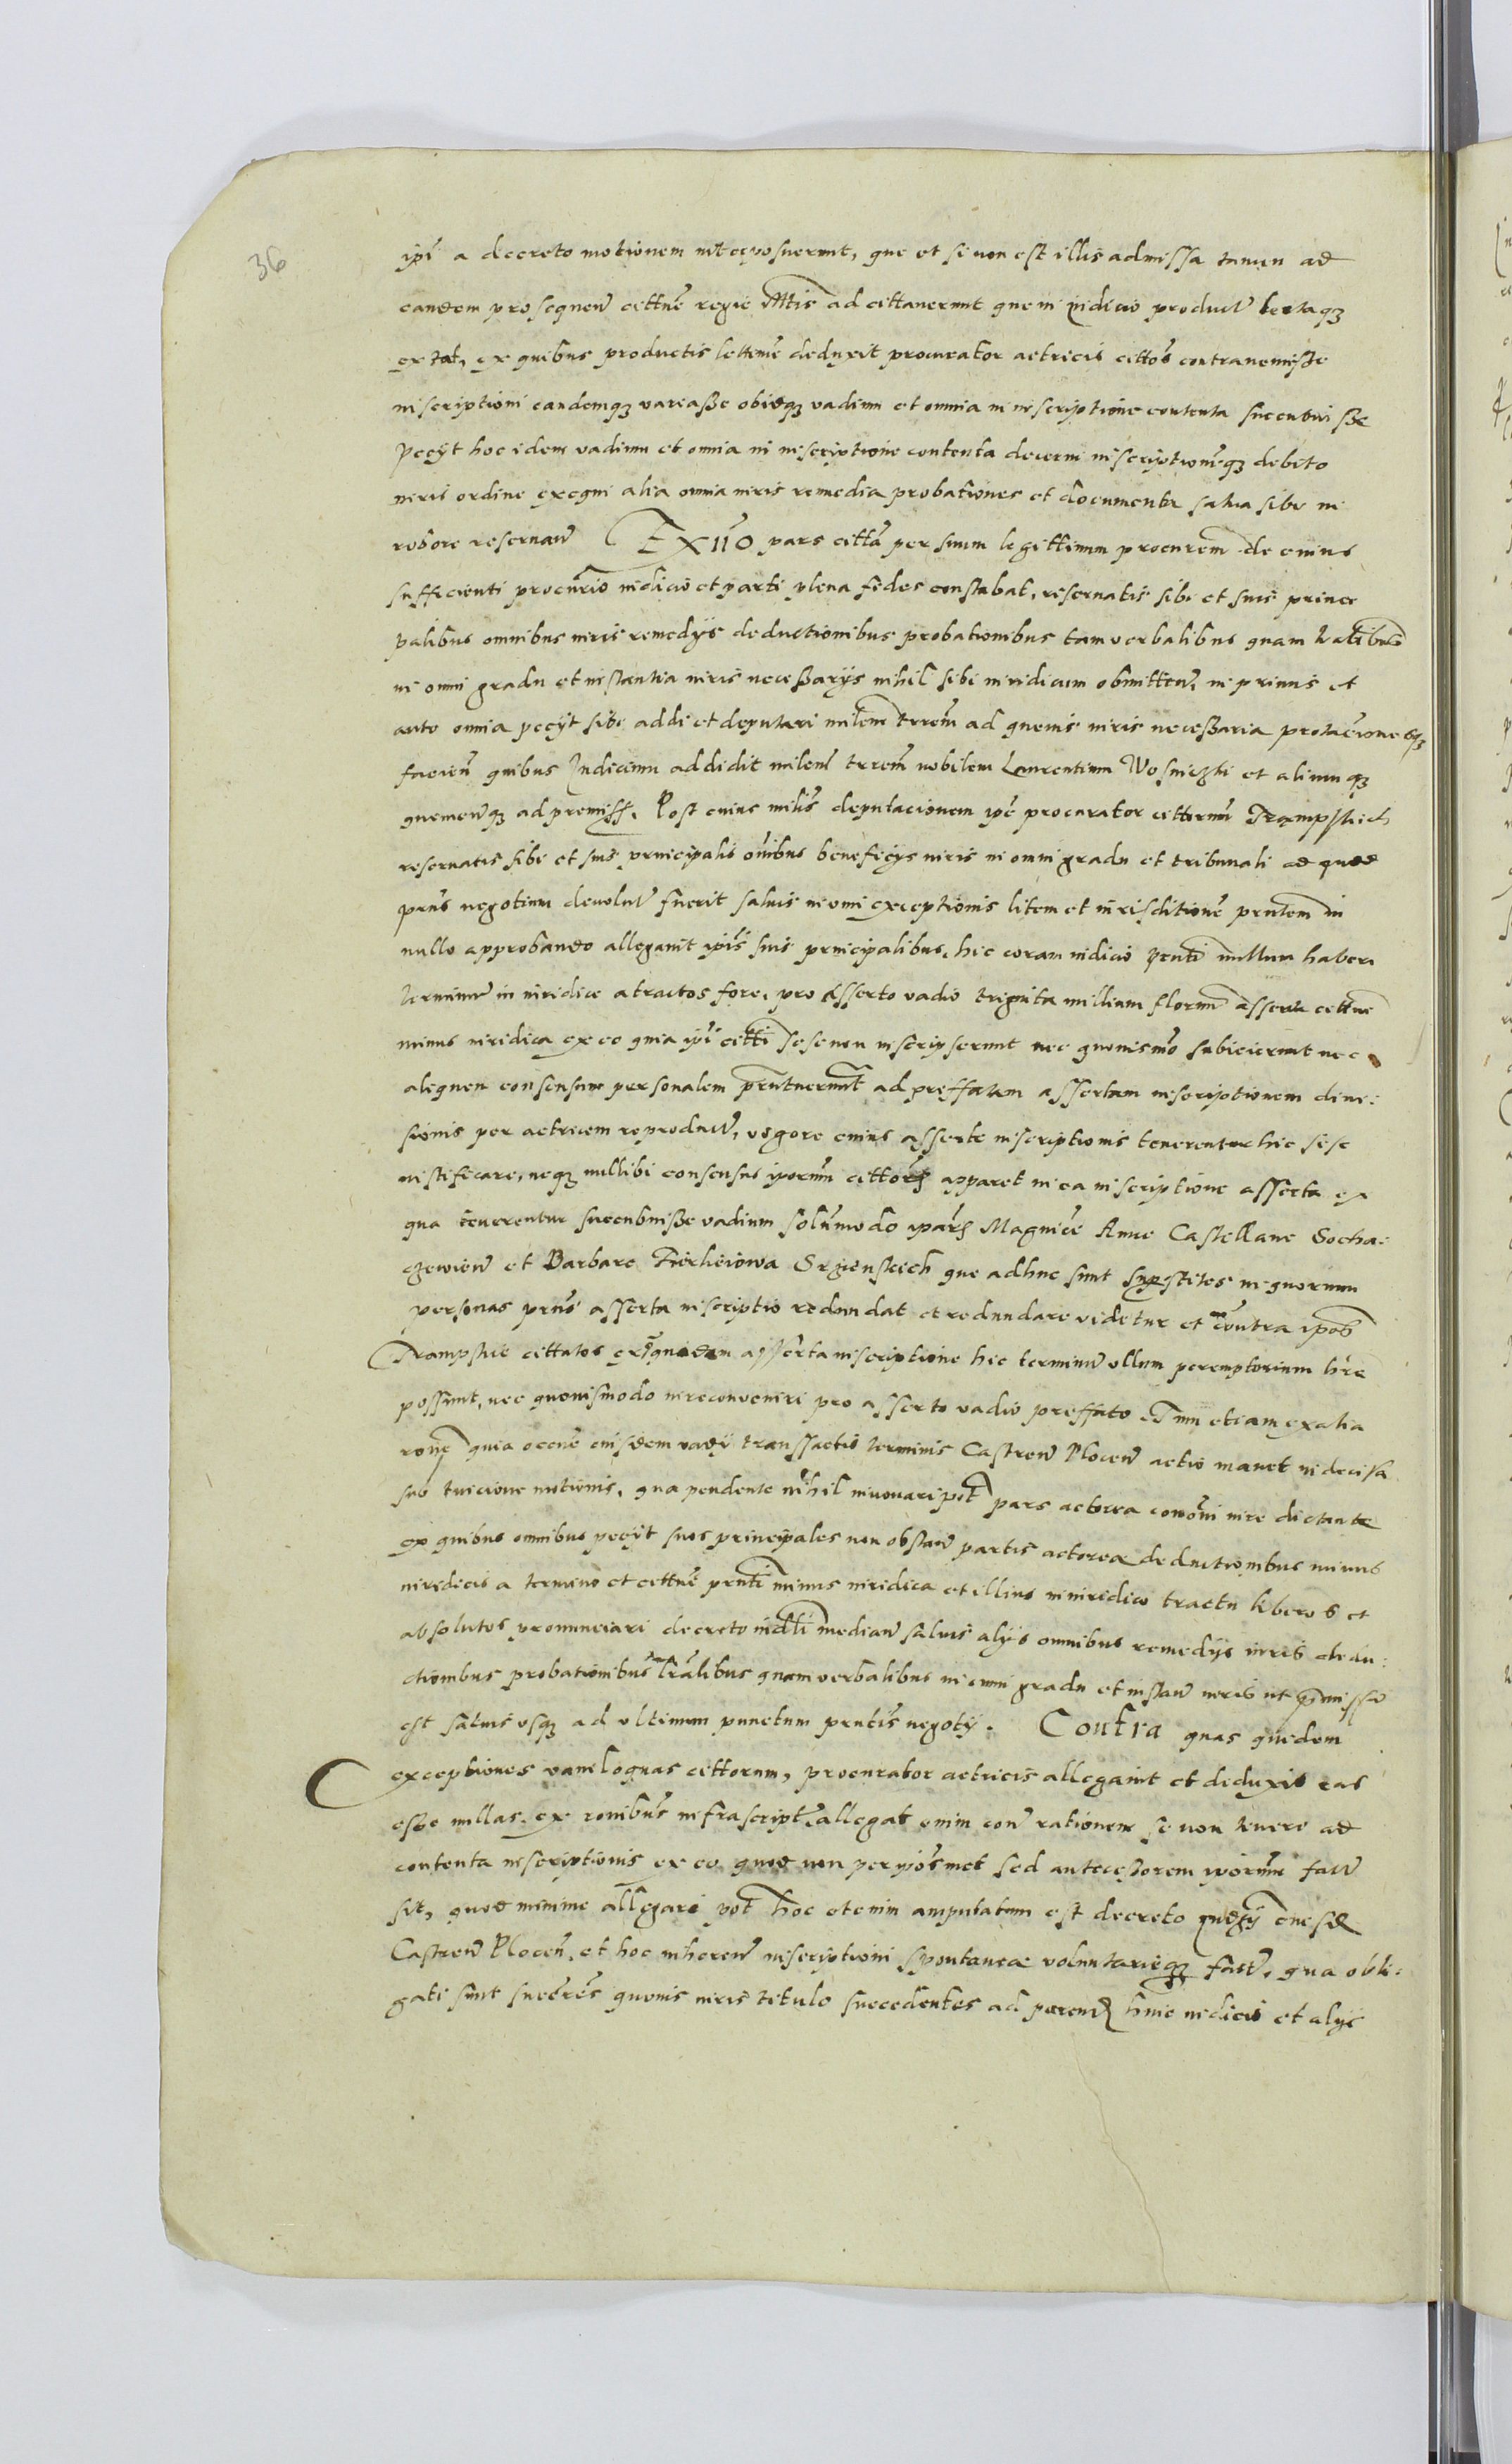 36
ipi a decreto motionem interposuerunt, que et si non est illis admissa tamen ad
eandem prosequen cittne regie Mtis ad cittaverunt que in iudicio product lectaq
extat, ex quibus productis lettime deduxit procurator actricis cittos contravenisse
inscriptioni eandemq variasse obidq vadium et omnia in inscriptione contenta succubuisse
Pecyt hoc idem vadium et omnia in inscriptione contenta decerni inscriptionemq debito
iuris ordine exequi alia omnia iuris remedia probationes et documenta salva sibi in
robore reservan Ex iio pars citta per suum legittimum procurem de cuius
sufficienti procurio iudicio et parti plena fides constabat, reservatis sibi et suis princi
palibus omnibus iuris remedys deductionibus probationibus tam verbalibus quam lralibus
in omni gradu et instantia iuris necessarys nihil sibi in iuridicum obmitten, in primis et
ante omnia pecyt sibi addi et deputari milem trrem ad quevis iuris necessaria protacioneseq
facien quibus Iudicium addidit milem trrem nobilem Laurentium Wosinszki et aliumq
quemcunq ad premiss. Post cuius milis deputacionem ipe procurator cittorum Trampskich
reservatis sibi et suis principalis omibus beneficys iuris in omni gradu et tribunali ad quod
prns negotium devolut fuerit salvis in omi exceptionis litem et iurisditione prntem in
nullo approbando allegavit ipis suis principalibus, hic coram iudicio prnti nullum haberi
terminum in iuridice atractos fore, pro asserto vadio triginta millium florum asserta cittne
minus iuridica ex eo quia ipi citti sese non inscripserunt nec quovismo subiecierunt nec
aliquem consensum personalem prntuerunt ad preffatam assertam inscriptionem divi:
sionis per actricem reproduct, vigore cuius asserte inscriptionis tenerentur hic sese
iustificare, neq nullibi consensus iporum cittor apparet in ea inscriptione asserta ex
qua tenerentur succubuisse vadium solummodo ipar Magnice Anne Castellane Socha:
czewien et Barbare Fierleiowa Srzenskich que adhuc sunt superstites in quorum
personas prns asserta inscriptio redundat et redundare videtur et non contra ipos
Trampskie cittatos ex quadem asserta inscriptione hic terminum ullum peremptorium hre
possunt, nec quovismodo in reconveniri pro asserto vadio preffato. Tum etiam ex alia
rone quia occne eiusdem vady transsactis terminis Castren Plocen actio manet indecisa
sub tuicione motionis, qua pendente nihil innovari pot pars actorea conomi iure dictante
ex quibus omnibus pecyt suos principales non obstan partis actorea deductionibus minus
iuridicis a termino et cittne prnti minus iuridica et illius in iuridico tractu liberos et
absolutos pronunciari decreto iudli median salvis alys omnibus remedys iuris dedu:
ctionibus probationibus lralibus quam verbalibus in omni gradu et instan iuris ut premissum
est salvis usq ad ultimum punctum prntis negoty. Contra quas quidem
exceptiones vaniloquas cittorum, procurator actricis allegavit et deduxit eas
esse nullas, ex ronibus infrascript allegat enim con rationem se non tenere ad
contenta inscriptionis ex eo quod non per iposmet sed antecessorem iporum fact
sit, quod minime allegari pot hoc etenim amputatum est decreto
Castren Plocen, et hoc inheren inscriptioni spontanea voluntarieq fact, qua obli:
gati sunt succres quovis iuris titulo succedentes ad paren huic iudicio et alys